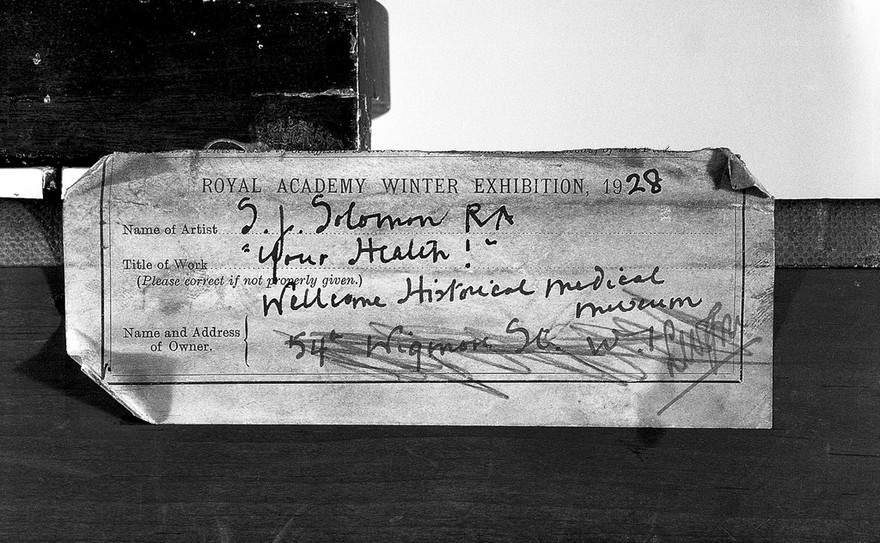 ROYAL ACADEMY WINTER EXHIBITION, 1928
Name of Artist S. J. Solomon RA
Title of Work "Your Health!"
(Please correct if not properly given.)
Wellcome Historical medical
museum
Name and Address
of Owner.
54A Wigmore St. W.1